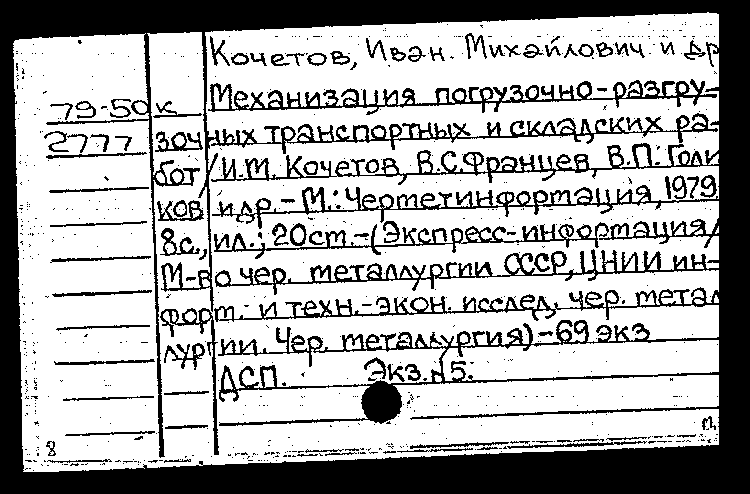 Кочетов, Иван. Михайлович и др
79-50к Механизация погрузочно-разгру-
2777 зочных транспортных и складских ра-
бот/И.М. Кочетов, В.С.Францев, В.П. Голи
ков и др. - М.: Черметинформация, 1979.
8с., ил.; 20см.-(Экспресс-информация/
М-во чер. металлургии СССР, ЦНИИ ин-
форм. и техн.-экон. исслед. чер. метал
лургии. Чер. металлургия)-69 экз
ДСП. Экз.N5.
8